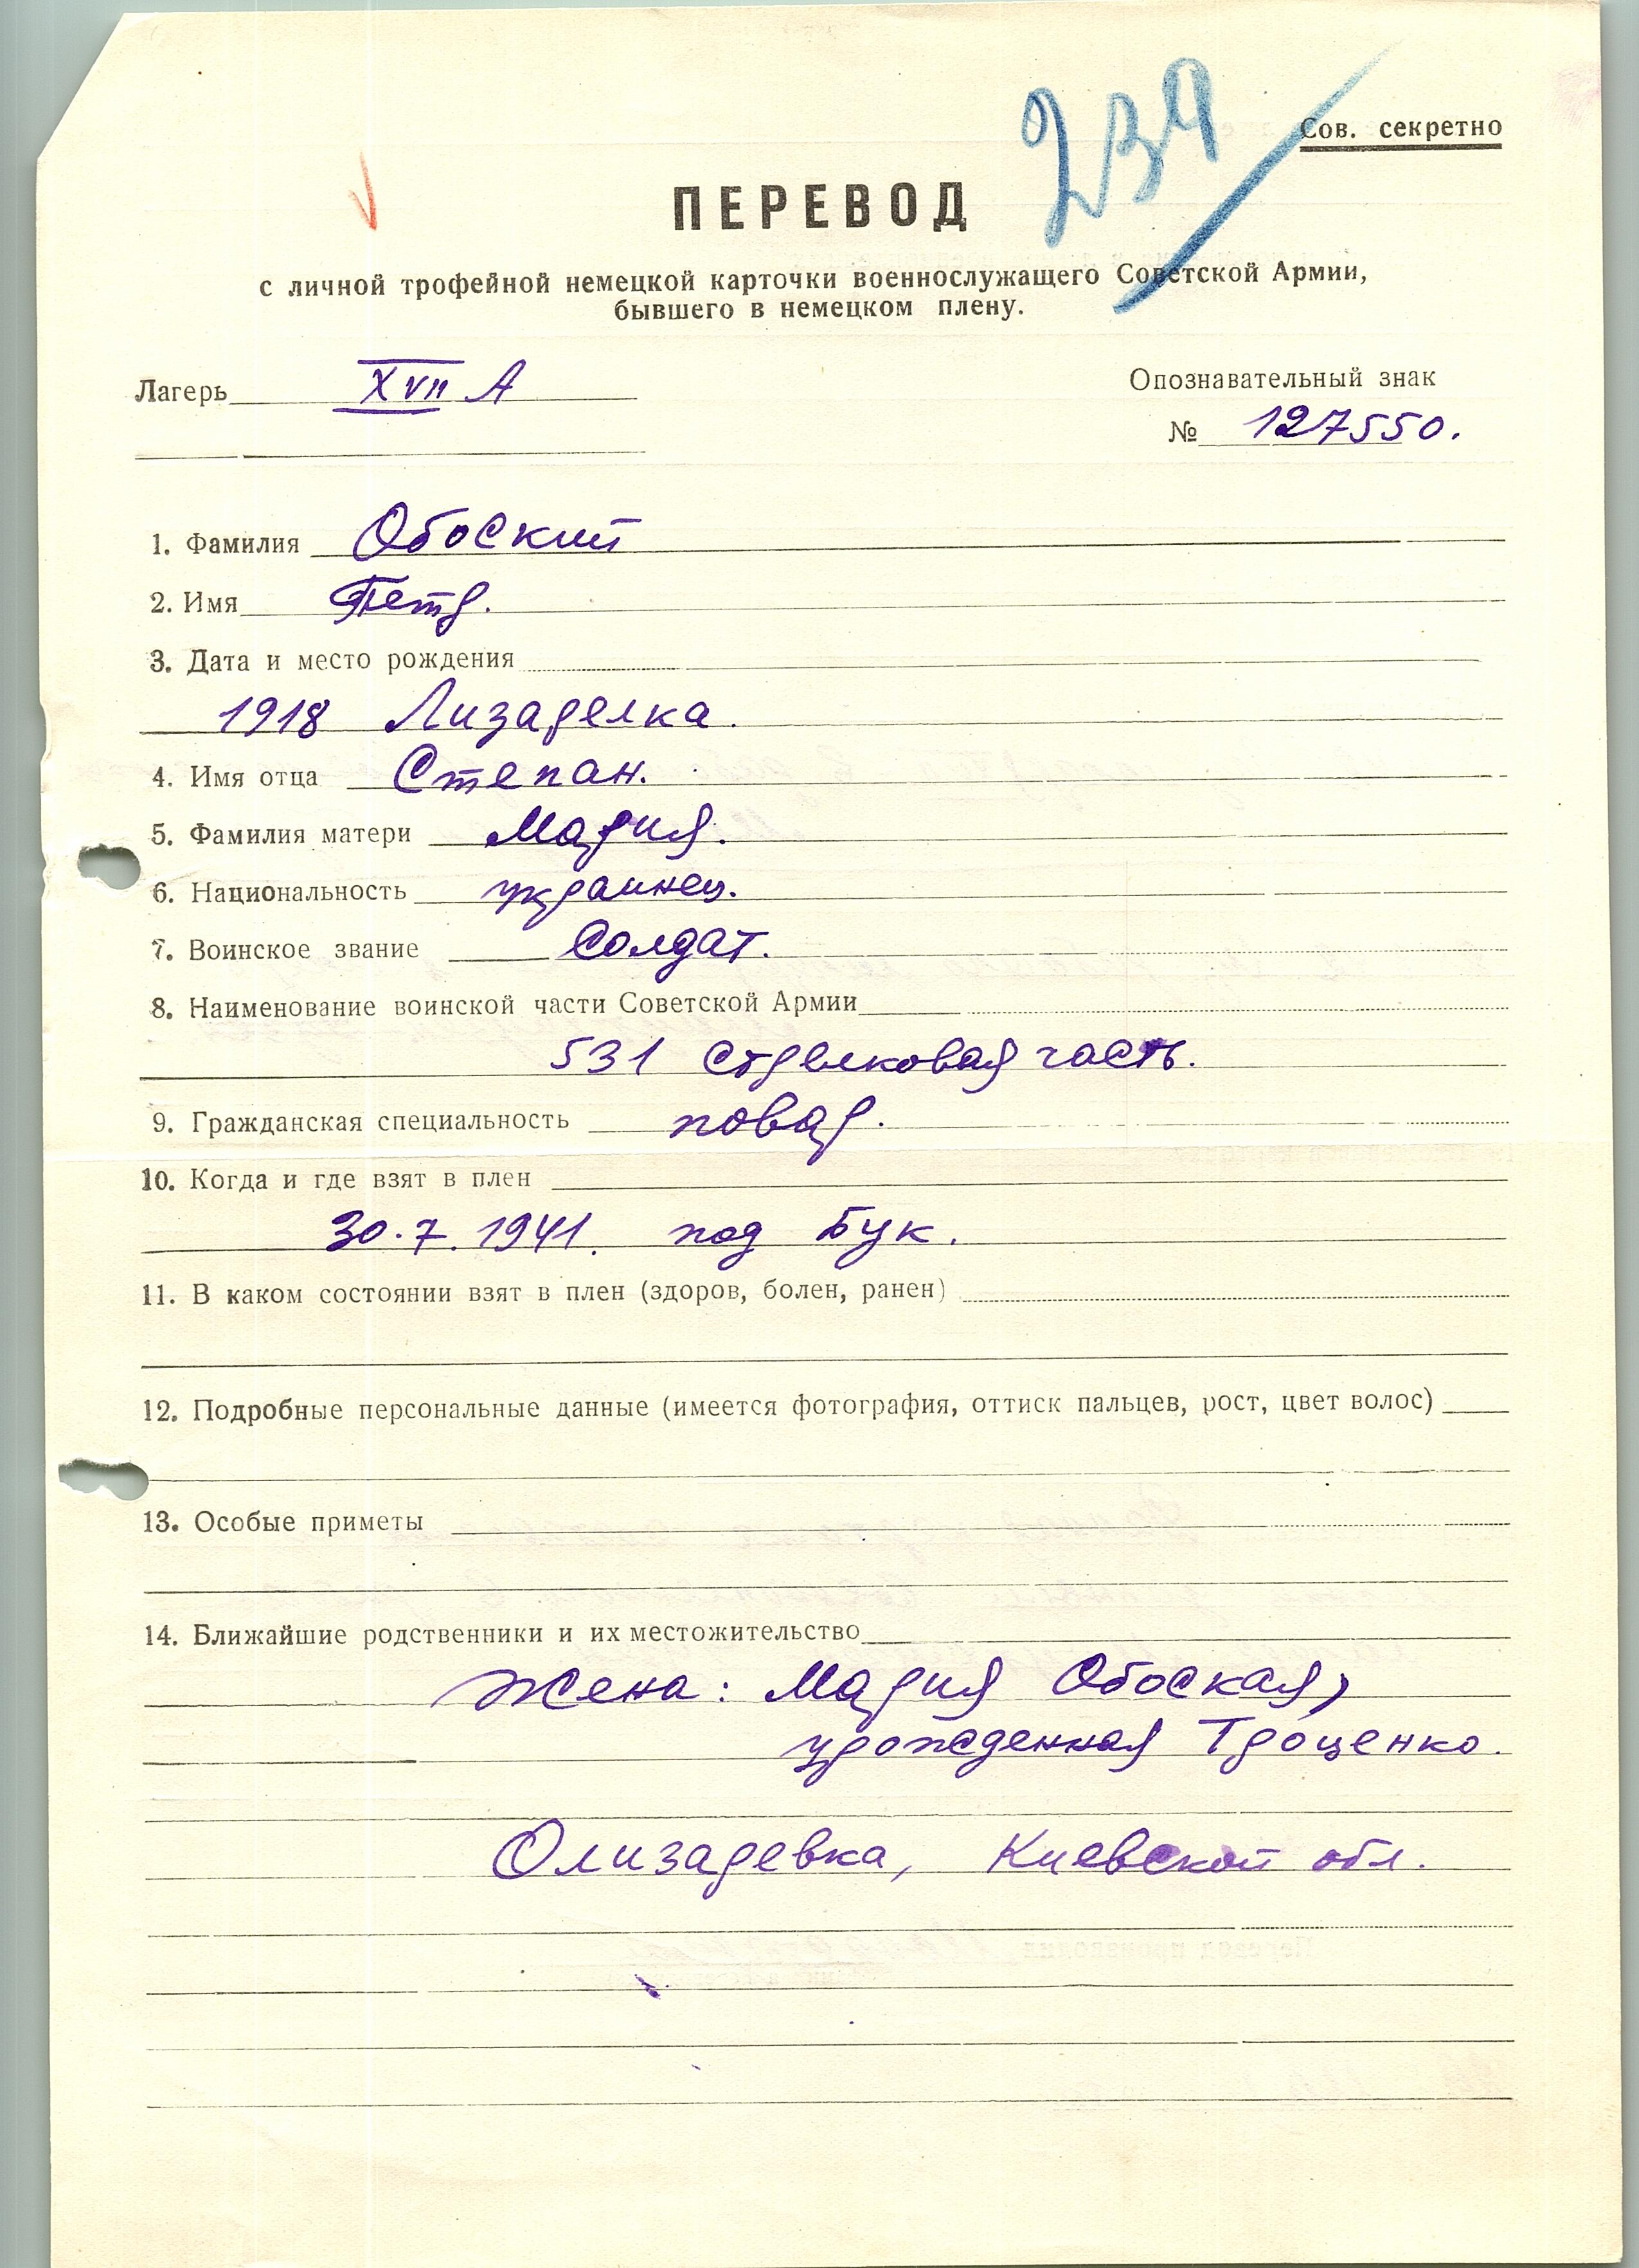 239
Сов. секретно
ПЕРЕВОД
с личной трофейной немецкой карточки военнослужащего Советской Армии,
бывшего в немецком плену.
Лагерь XVII А
Опознавательный знак
№ 127550.
1. Фамилия Обоский
2. Имя Петр.
3. Дата и место рождения
1918 Лизарелка.
4. Имя отца Степан.
5. Фамилия матери Мария.
6. Национальность украинец.
7. Воинское звание Солдат.
8. Наименование воинской части Советской Армии
531 стрелковая часть.
9. Гражданская специальность повар.
10. Когда и где взят в плен
30.7.1941. под Бук.
11. В каком состоянии взят в плен (здоров, болен, ранен)
12. Подробные персональные данные (имеется фотография, оттиск пальцев, рост, цвет волос)
13. Особые приметы
14. Ближайшие родственники и их местожительство
Жена: Мария Обоская,
урожденная Троценко.
Олизаревка, Киевской обл.